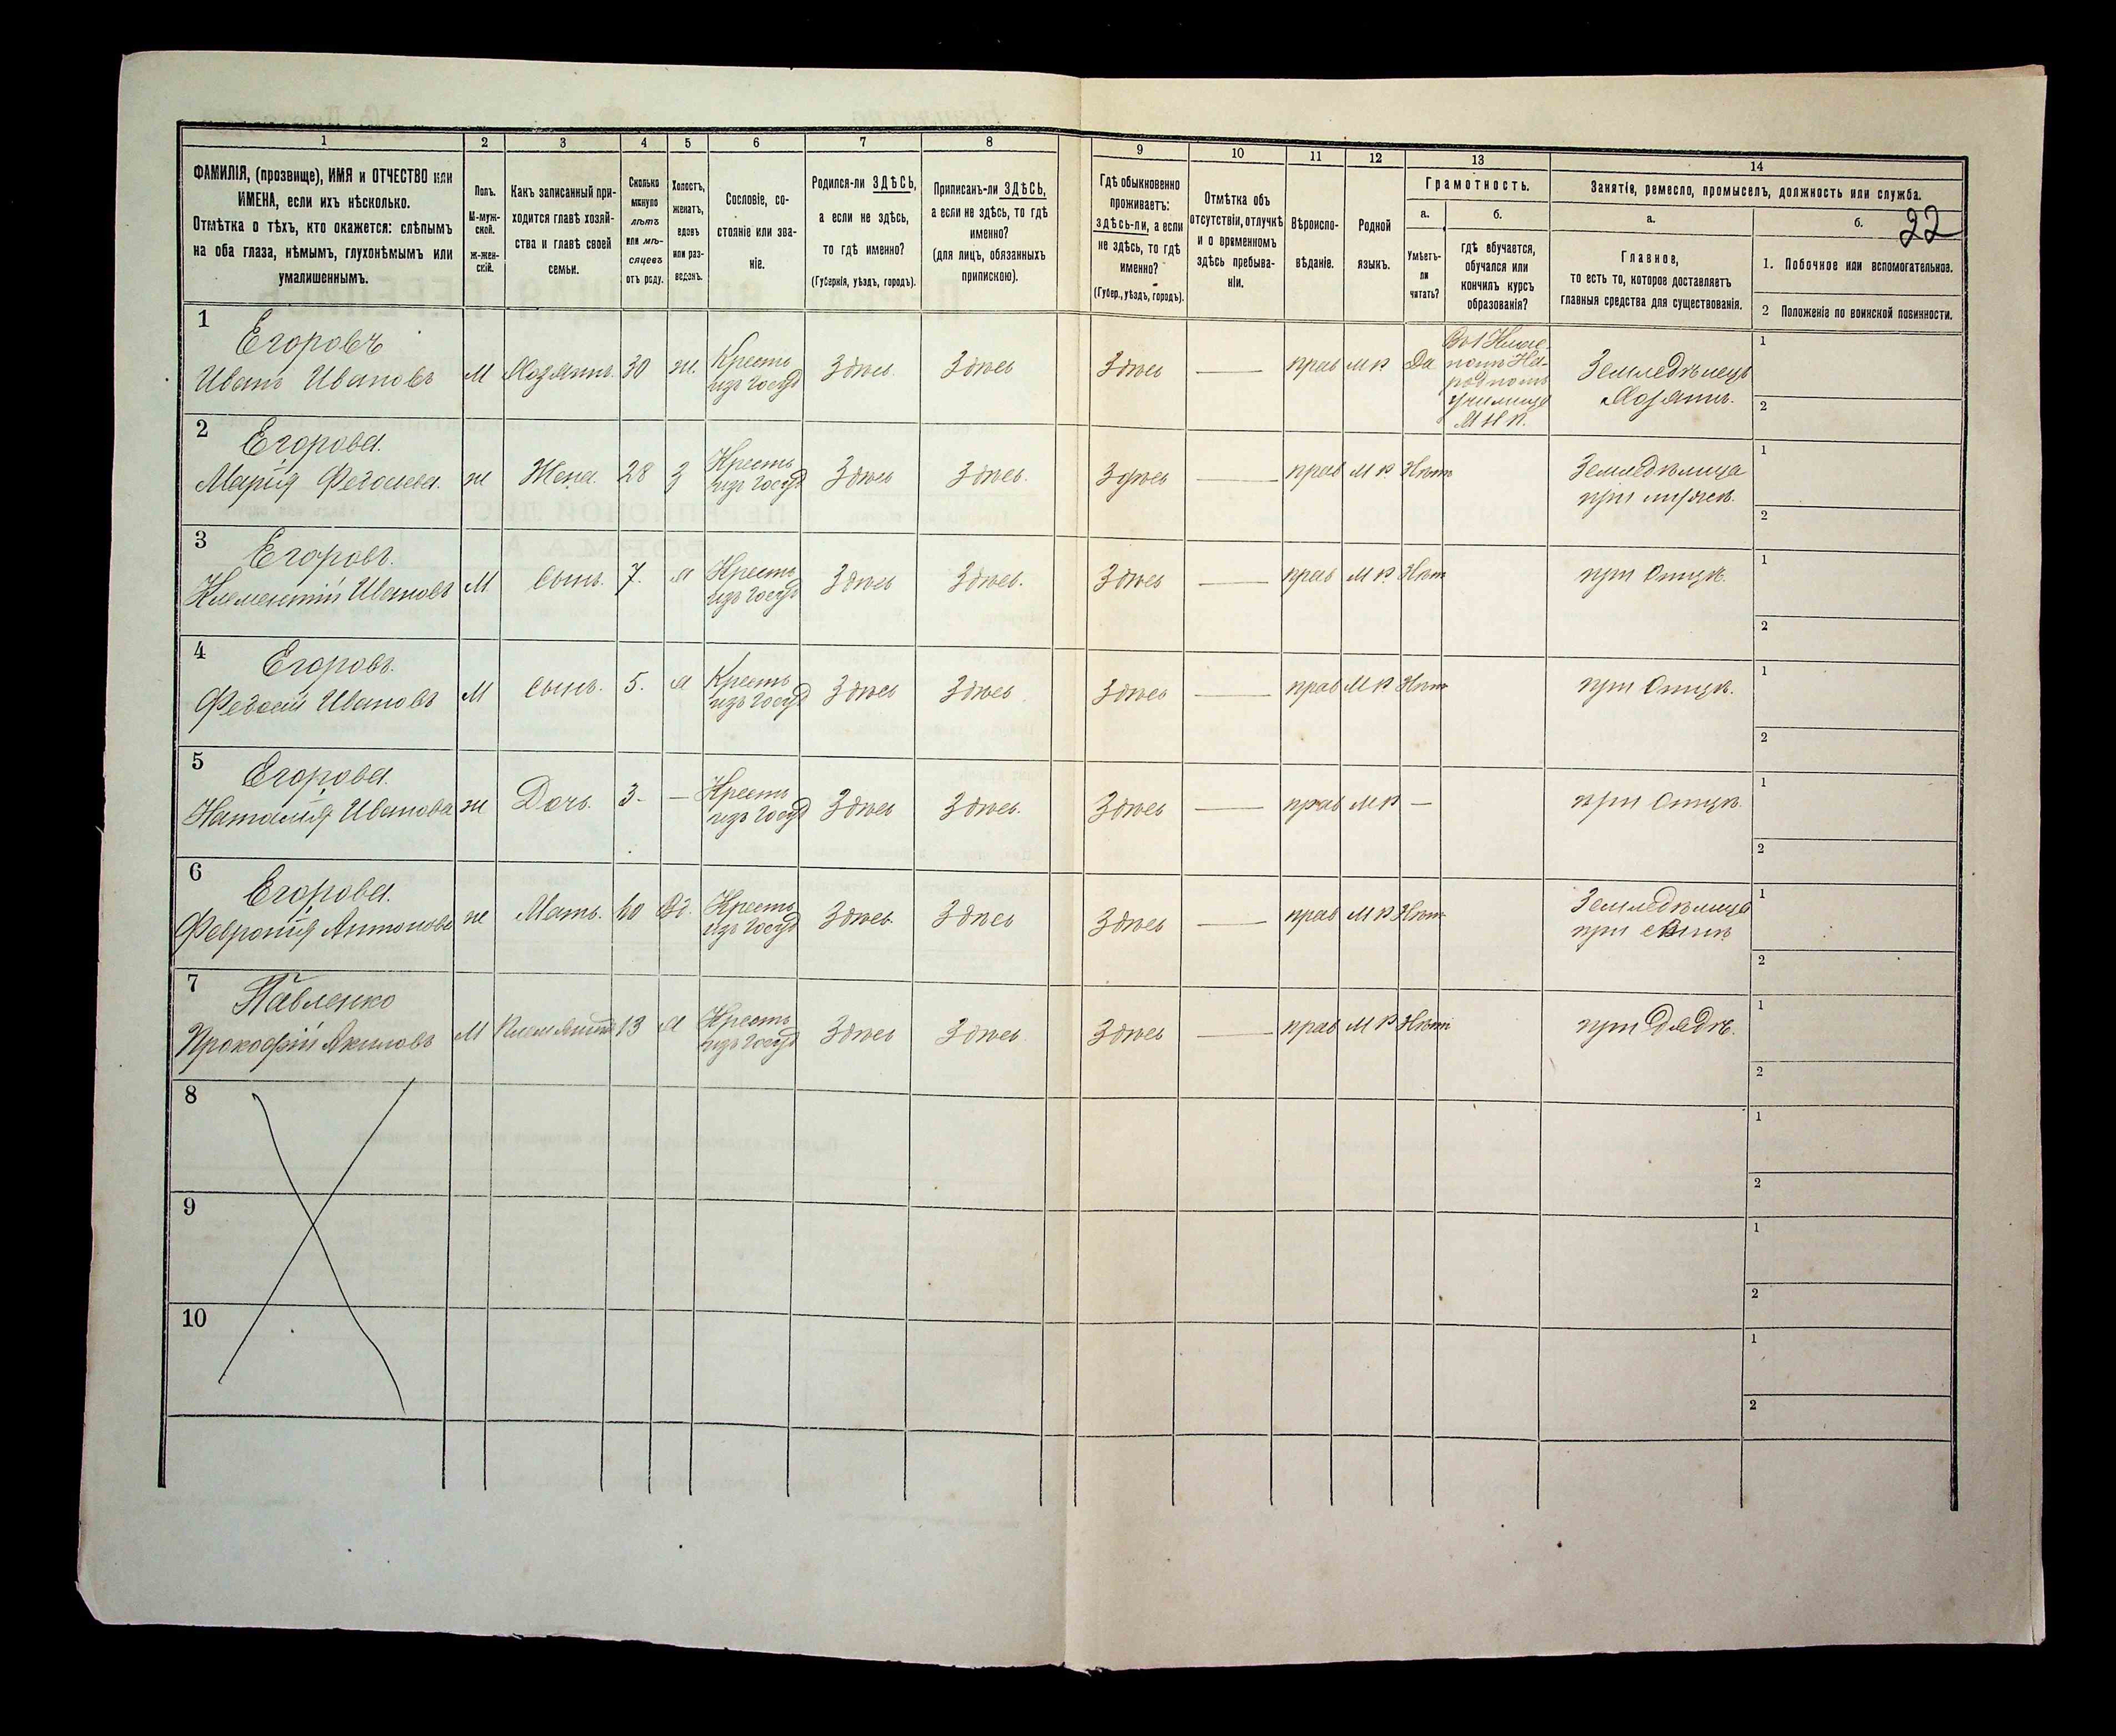 1
2
3
4
5
6
7
8
9
10
11
12
13
14
22
ФАМИЛІЯ, (прозвище), ИМЯ и ОТЧЕСТВО или
ИМЕНА, если ихъ нѣсколько.
Отмѣтка о тѣхъ, кто окажется: слѣпымъ
на оба глаза, нѣмымъ, глухонѣмымъ или
умалишеннымъ.
Полъ.
М-муж-
ской.
Ж-жен-
скій.
Какъ записанный при-
ходится главѣ хозяй-
ства и главѣ своей
семьи.
Сколько
минуло
лѣтъ
или мѣ-
сяцевъ
отъ роду.
Холостъ,
женатъ,
вдовъ
или раз-
веденъ.
Сословіе, со-
стояніе или зва-
ніе.
Родился-ли ЗДѢСЬ,
а если не здѣсь,
то гдѣ именно?
(Губернія, уѣздъ, городъ).
Приписанъ-ли ЗДѢСЬ,
а если не здѣсь, то гдѣ
именно?
(для лицъ, обязанныхъ
припискою).
Гдѣ обыкновенно
проживаетъ:
здѣсь-ли, а если
не здѣсь, то гдѣ
именно?
(Губер., уѣздъ, городъ).
Отмѣтка объ
отсутствіи, отлучкѣ
и о временномъ
здѣсь пребыва-
ніи.
Вѣроиспо-
вѣданіе.
Родной
языкъ.
Грамотность.
а.
Умѣетъ-
ли
читать?
б.
гдѣ обучается,
обучался или
кончилъ курсъ
образованія?
Занятіе, ремесло, промыселъ, должность или служба.
а.
Главное,
то есть то, которое доставляетъ
главныя средства для существованія.
б.
1. Побочное или вспомогательное.
2 Положеніе по воинской повинности.
1
Егоровъ
Иванъ Ивановъ
М
Хозяинъ.
30
ж.
Кресть
изъ Госуд
Здѣсь
Здѣсь
Здѣсь
прав
М Р
Да
народномъ
училищѣ
М Н П.
Земледѣлецъ
Хозяинъ.
1
2
2
Егорова.
Марія
ж
Жена.
28
З
Кресть
изъ Госуд
Здѣсь
Здѣсь.
Здѣсь
прав
М Р.
Нѣтъ
Земледѣлица
при мужѣ.
1
2
3
Егоровъ.
Климентій Ивановъ
М
сынъ.
7.
Кресть
изъ Госуд
Здѣсь
Здѣсь.
Здѣсь
прав
М Р.
Нѣтъ
при Отцѣ.
1
2
4
Егоровъ.
Федосій Ивановъ
М
сынъ.
5.
Кресть
изъ Госуд
Здѣсь
Здѣсь
Здѣсь
прав
М Р
Нѣтъ
при Отцѣ.
1
2
5
Егорова.
Наталія Иванова
ж
Дочь.
3.
—
Кресть
изъ Госуд
Здѣсь
Здѣсь.
Здѣсь
прав
М Р
—
при Отцѣ.
1
2
6
Егорова.
Февронія Антонова
ж
Мать.
60
Вд.
Кресть
изъ Госуд
Здѣсь.
Здѣсь
Здѣсь
прав
М Р
Нѣтъ
Земледѣлица
при сынѣ
1
2
7
Павленко
Прокофій Акимовъ
М
Племянникъ
13
Кресть
изъ Госуд
Здѣсь
Здѣсь
Здѣсь
прав
М Р
Нѣтъ
при Дядѣ.
1
2
8
1
2
9
1
2
10
1
2